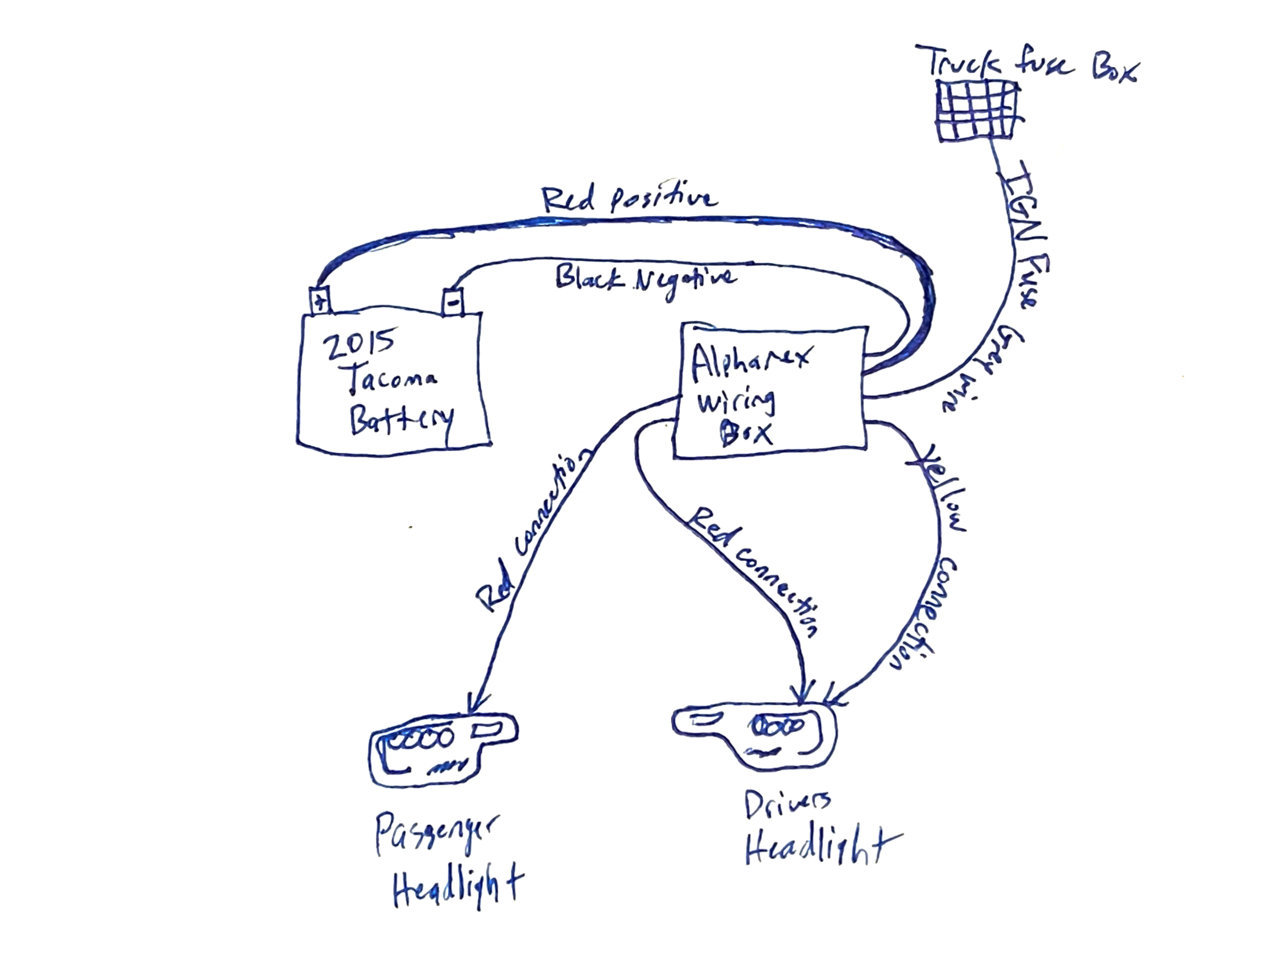 Truck fuse Box
IGN Fuse Grey wire
Red positive
Black Negative
+
-
2015
Tacoma
Battery
Alpharex
wiring
Box
Red connection
Red connection
Yellow connection
Passenger
Headlight
Drivers
Headlight